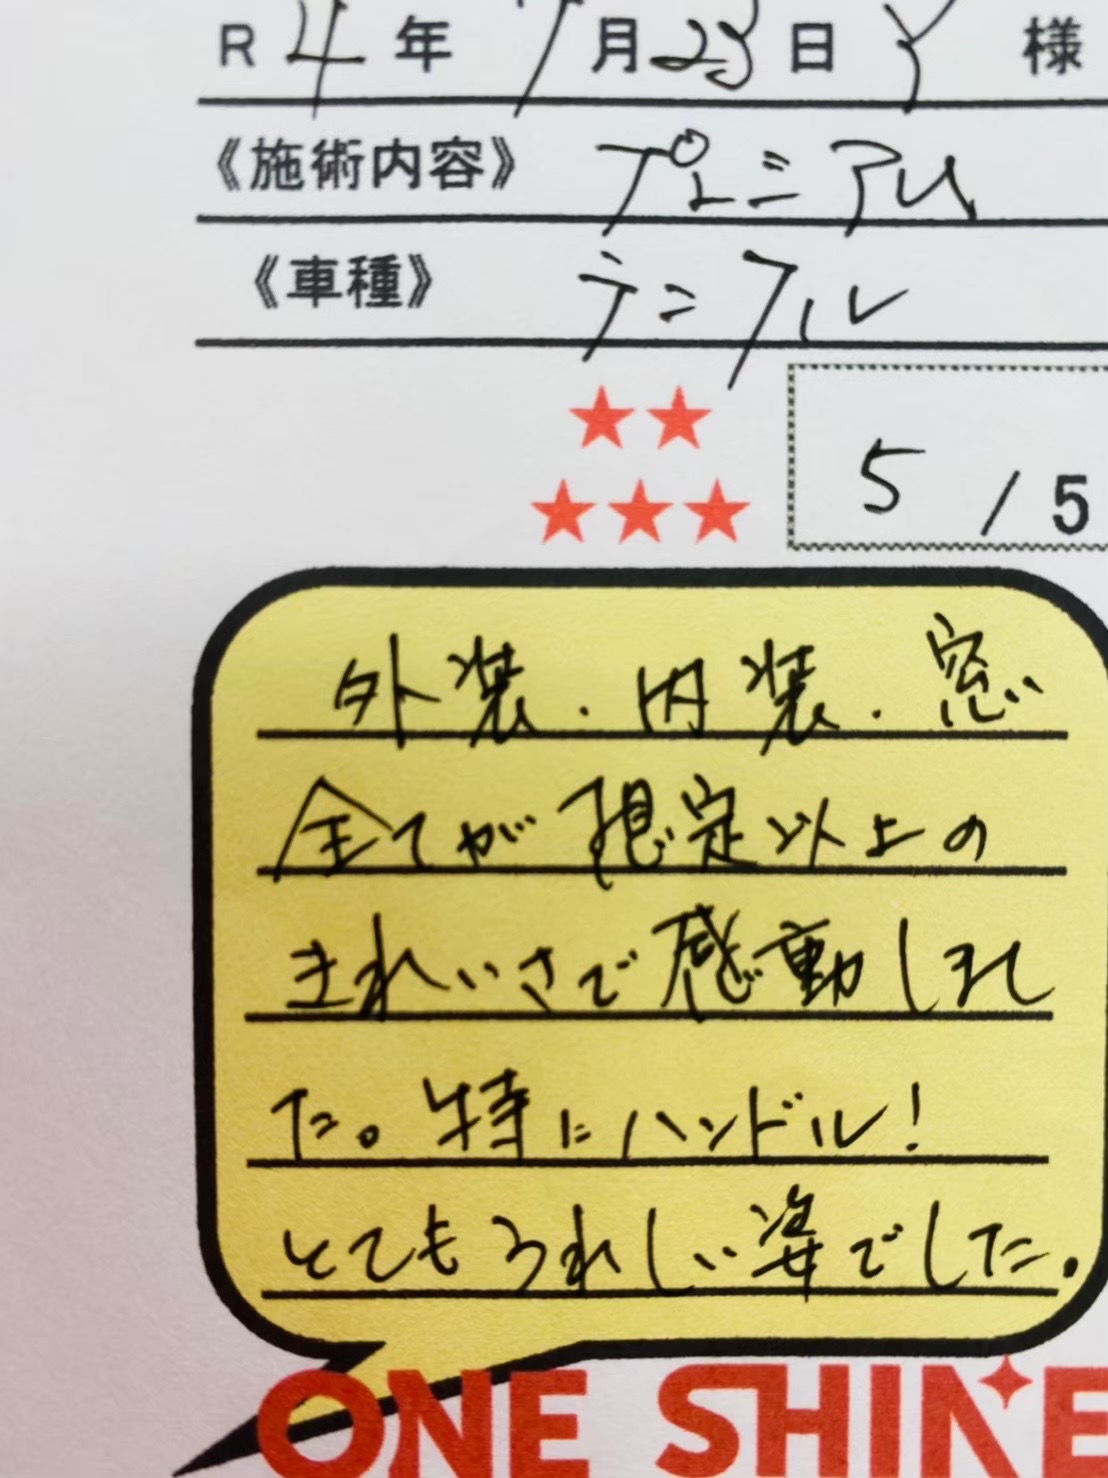 R 4 年 7 月 23 日 Y 様
《施術内容》 プレミアム
《車種》 デュアル
5 / 5
外装・内装・窓
全てが想定以上の
きれいさで感動しまし
た。特にハンドル!
とてもうれしい姿でした。
ONE SHINE